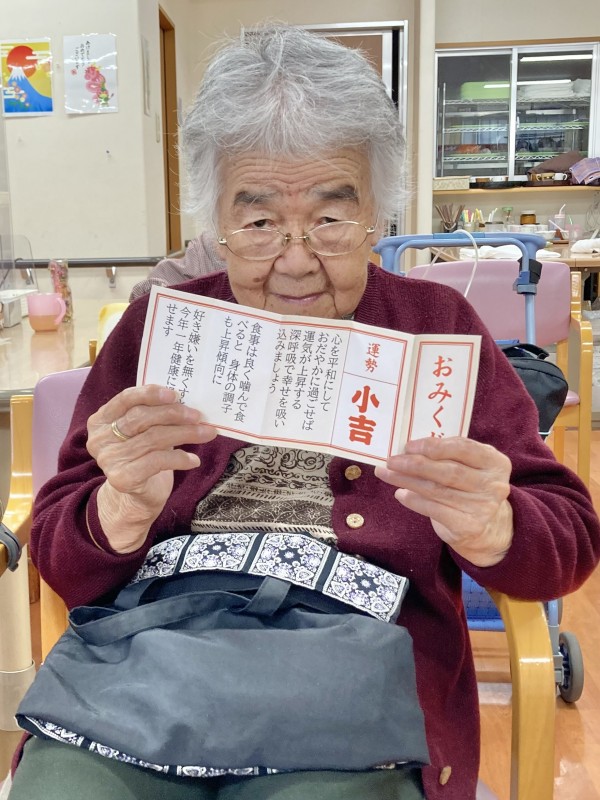 おみく
運勢
小吉
心を平和にして
おだやかに過ごせば
運気が上昇する
深呼吸で幸せを吸い
込みましょう
食事は良く噛んで食
べると、身体の調子
も上昇傾向に
好き嫌いを無くす
今年一年健康に
せます